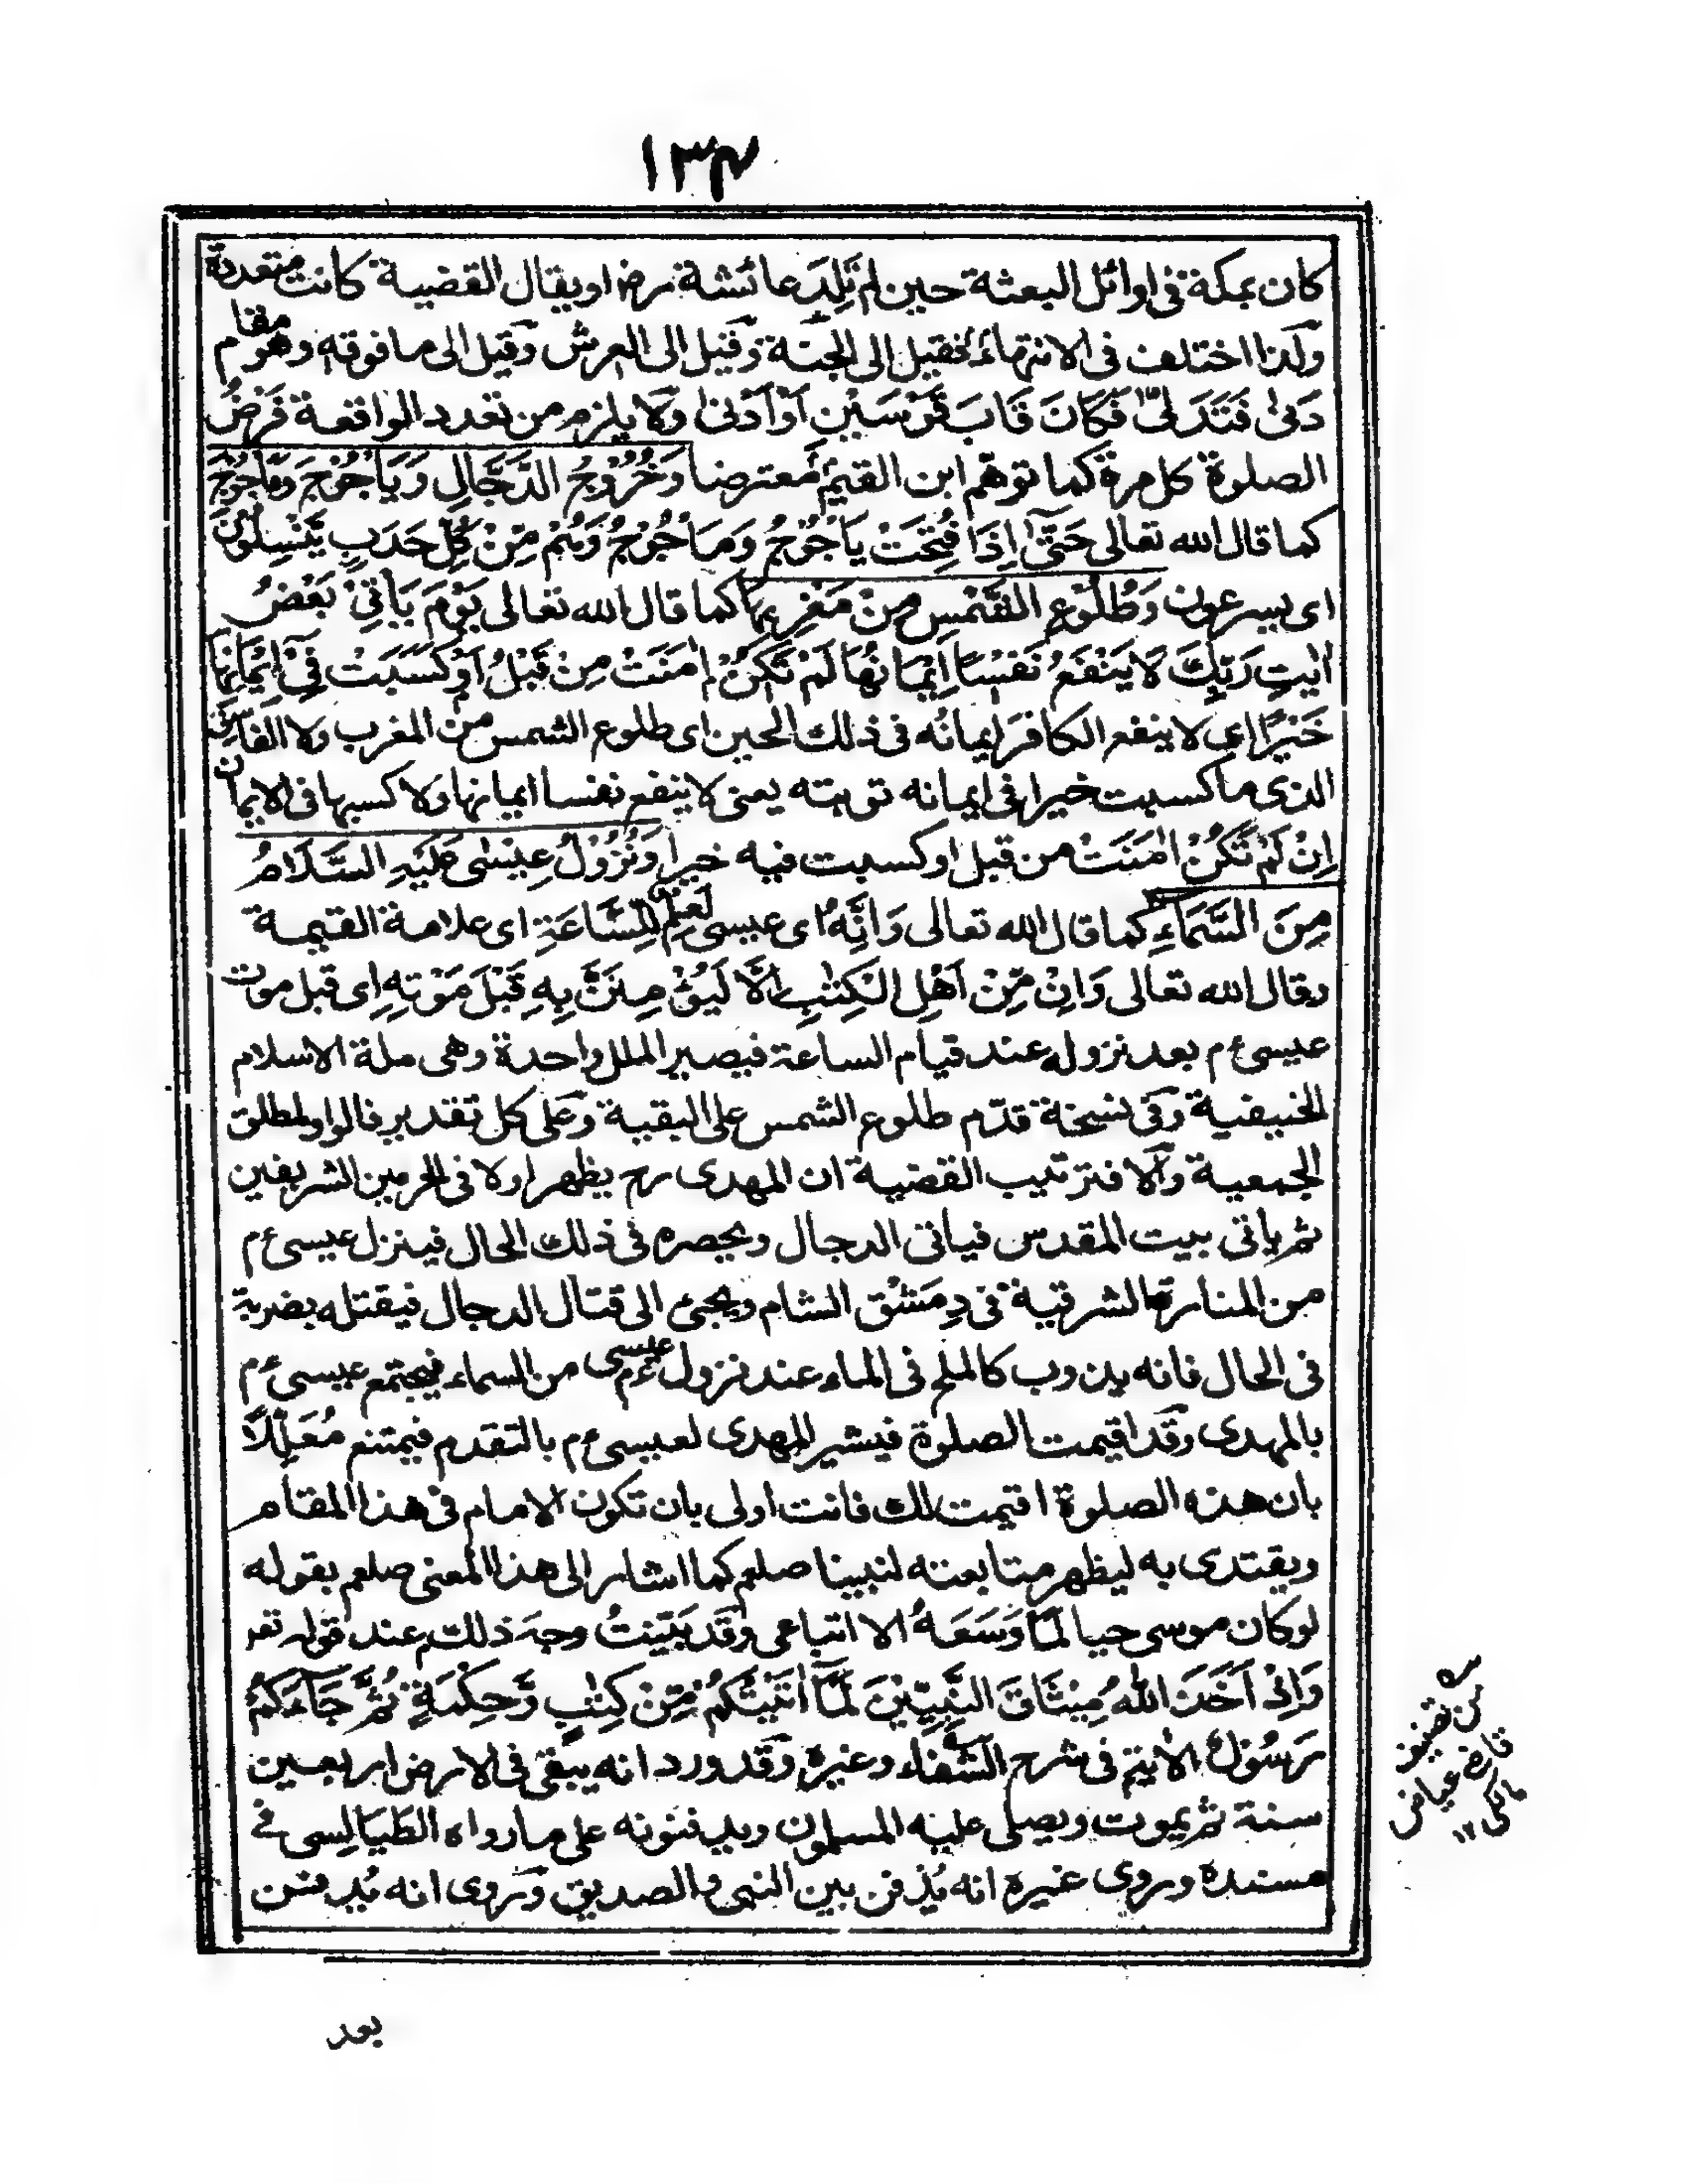 ١٣٧
كان بمكة فى اوائل البعثة حين لم تَلِد عائشة رض او يقال القضية كانت متعددة
ولذا اختلف فى الانتهاء فقيل الى الجنة وقيل الى العرش وقيل الى ما فوقه وهو مقام
دَنىٰ فَتَدَلّىٰ فَكَانَ قَابَ قَوْسَيْنِ اَوْ اَدْنىٰ ولا يلزم من تعدد الواقعة فَرْضُ
الصلوة كل مرة كما توهم ابن القيم معترضا وَخُرُوْجُ الدَّجَّالِ وَيَاْجُوْجَ وَمَاْجُوْجَ
كما قال الله تعالى حَتّىٰٓ اِذَا فُتِحَتْ يَاْجُوْجُ وَمَاْجُوْجُ وَهُمْ مِّنْ كُلِّ حَدَبٍ يَّنْسِلُوْنَ
اى يسرعون وَطُلُوْعِ الشَّمْسِ مِنْ مَغْرِبِهَا كما قال الله تعالى يَوْمَ يَاْتِيْ بَعْضُ
اٰيٰتِ رَبِّكَ لَا يَنْفَعُ نَفْسًا اِيْمَانُهَا لَمْ تَكُنْ اٰمَنَتْ مِنْ قَبْلُ اَوْ كَسَبَتْ فِيْٓ اِيْمَانِهَا
خَيْرًا اى لا ينفع الكافرَ ايمانُه فى ذلك الحين اى طلوع الشمس من المغرب ولا الفاسق
الذى ما كسبت خيرا فى ايمانه توبته يعنى لا ينفع نفسا ايمانها ولا كسبها فى الايمان
اِنْ لَمْ تَكُنْ اٰمَنَتْ من قبل او كسبت فيه خيرا وَنُزُوْلُ عِيْسٰى عَلَيْهِ السَّلَامُ
مِنَ السَّمَاءِ كما قال الله تعالى وَاِنَّهٗ اى عيسى لَعِلْمٌ لِّلسَّاعَةِ اى علامة القيمة
وقال الله تعالى وَاِنْ مِّنْ اَهْلِ الْكِتٰبِ اِلَّا لَيُؤْمِنَنَّ بِهٖ قَبْلَ مَوْتِهٖ اى قبل موت
عيسى ءم بعد نزوله عند قيام الساعة فيصير الملل واحدة وهى ملة الاسلام
الحنيفية وفى نسخة قدّم طلوع الشمس على البقية وعلى كل تقدير فالواو لمطلق
الجمعية والا فترتيب القضية ان المهدى رح يظهر اولا فى الحرمين الشريفين
ثم ياتى بيت المقدس فياتى الدجال ويحصره فى ذلك الحال فينزل عيسى ءم
من المنارة الشرقية فى دِمَشْق الشام ويجئ الى قتال الدجال فيقتله بضربة
فى الحال فانه يذوب كالملح فى الماء عند نزول عيسى ءم من السماء فيجتمع عيسى ءم
بالمهدى وقد اقيمت الصلوة فيشير المهدى لعيسى ءم بالتقدم فيمتنع مُعَلِّلًا
بان هذه الصلوة اقيمت لك فانت اولى بان تكون الامام فى هذا المقام
ويقتدى به ليظهر متابعته لنبينا صلعم كما اشار الى هذا المعنى صلعم بقوله
لو كان موسى حيا لَمَا وَسِعَهُ الا اتباعى وقد بَيّنتُ وجهَ ذلك عند قوله تعـ
وَاِذْ اَخَذَ اللهُ مِيْثَاقَ النَّبِيّٖنَ لَمَآ اٰتَيْتُكُمْ مِّنْ كِتٰبٍ وَّحِكْمَةٍ ثُمَّ جَآءَكُمْ
رَسُوْلٌ الآية فى شرح الشفاء وغيره وقد ورد انه يبقى فى الارض اربعين
سنة ثم يموت ويصلى عليه المسلمون ويدفنونه على ما رواه الطيالِسى فى
مسنده وروى غيره انه يُدفن بين النبى والصديق وروى انه يُدفن
من تصنيف
قاضى عياض
مالكى ١٢
بعد